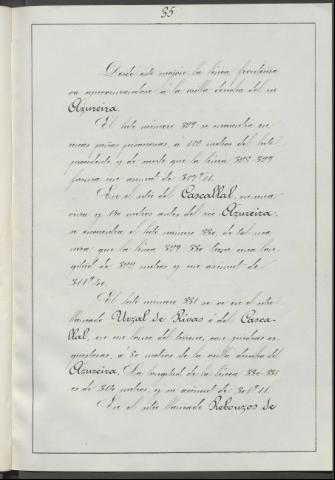 35
Desde este mojón la línea fronteriza
va aproximandose á la orilla derecha del río
Azureira.
El hito número 329 se encuentra en
unas peñas pizarrosas, á 122 metros del hito
precedente y de suerte que la línea 328-329
forma un azimut de
En el sitio del Cascallal, en una
y 130 metros antes del río Azureira,
se encuentra el hito número 330, de tal ma
nera que la línea 329-330 tiene una lon
gitud de metros y un azimut de
El hito número 331 se ve en el sitio
llamado Urzal de Rivas ó del Casca-
llal, en un lomo del terreno, con piedras es-
quistosas, á 50 metros de la orilla derecha del
Azureira. La longitud de la línea 330-331
es de metros, y su azimut de
En el sitio llamado Rebouzos de